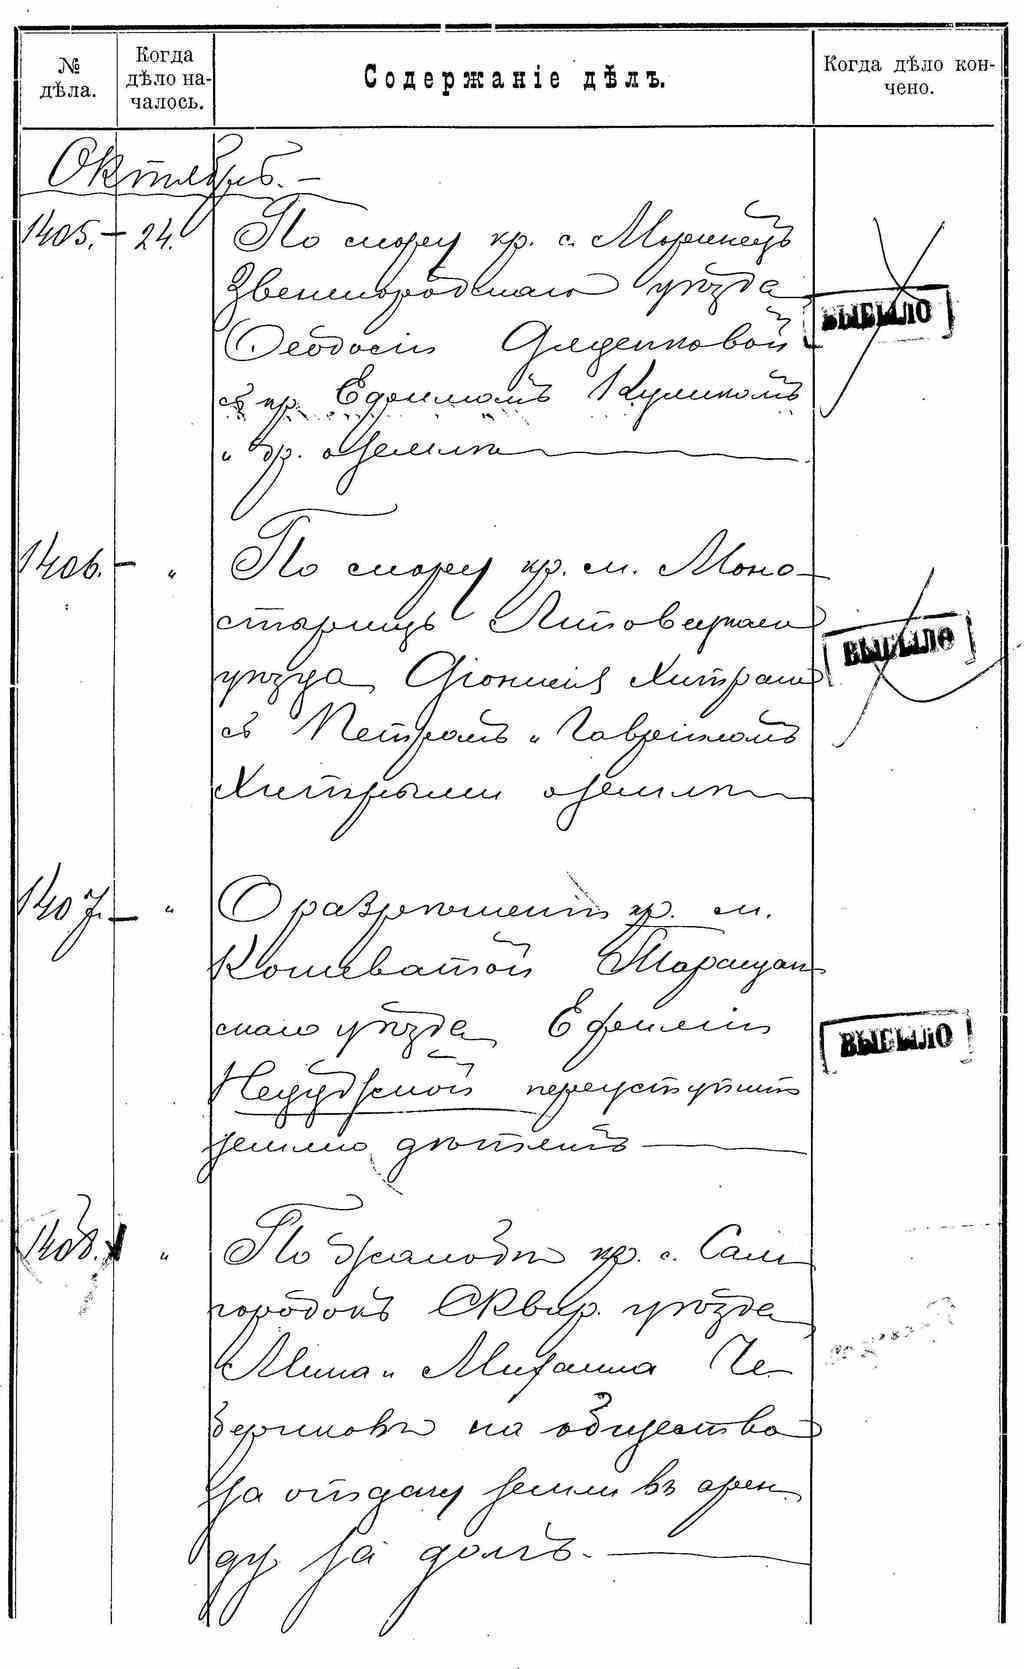 № дѣла.
Когда дѣло началось.
Содержаніе дѣлъ.
Когда дѣло кончено.
Октябрь. —
1405. — 24. По спору кр. с. Моринецъ
Звенигородскаго уѣзда
Ѳеодосіи Яценковой
съ кр. Ефимомъ Куликомъ
и др. о землѣ
ВЫБЫЛО
1406. — „ По спору кр. м. Мона-
стырищъ Липовецкаго
уѣзда Діонисія Хитраго
съ Петромъ и Гавріиломъ
Хитрыми о землѣ
ВЫБЫЛО
1407. — „ О разрѣшеніи кр. м.
Кошеватой Таращан
скаго уѣзда Ефиміи
переуступить
землю дѣтямъ
ВЫБЫЛО
1408. „ По жалобѣ кр. с. Сам
городокъ Сквир. уѣзда
Мины и Михаила Че-
на общество
за отдачу земли въ арен-
ду за долгъ. —